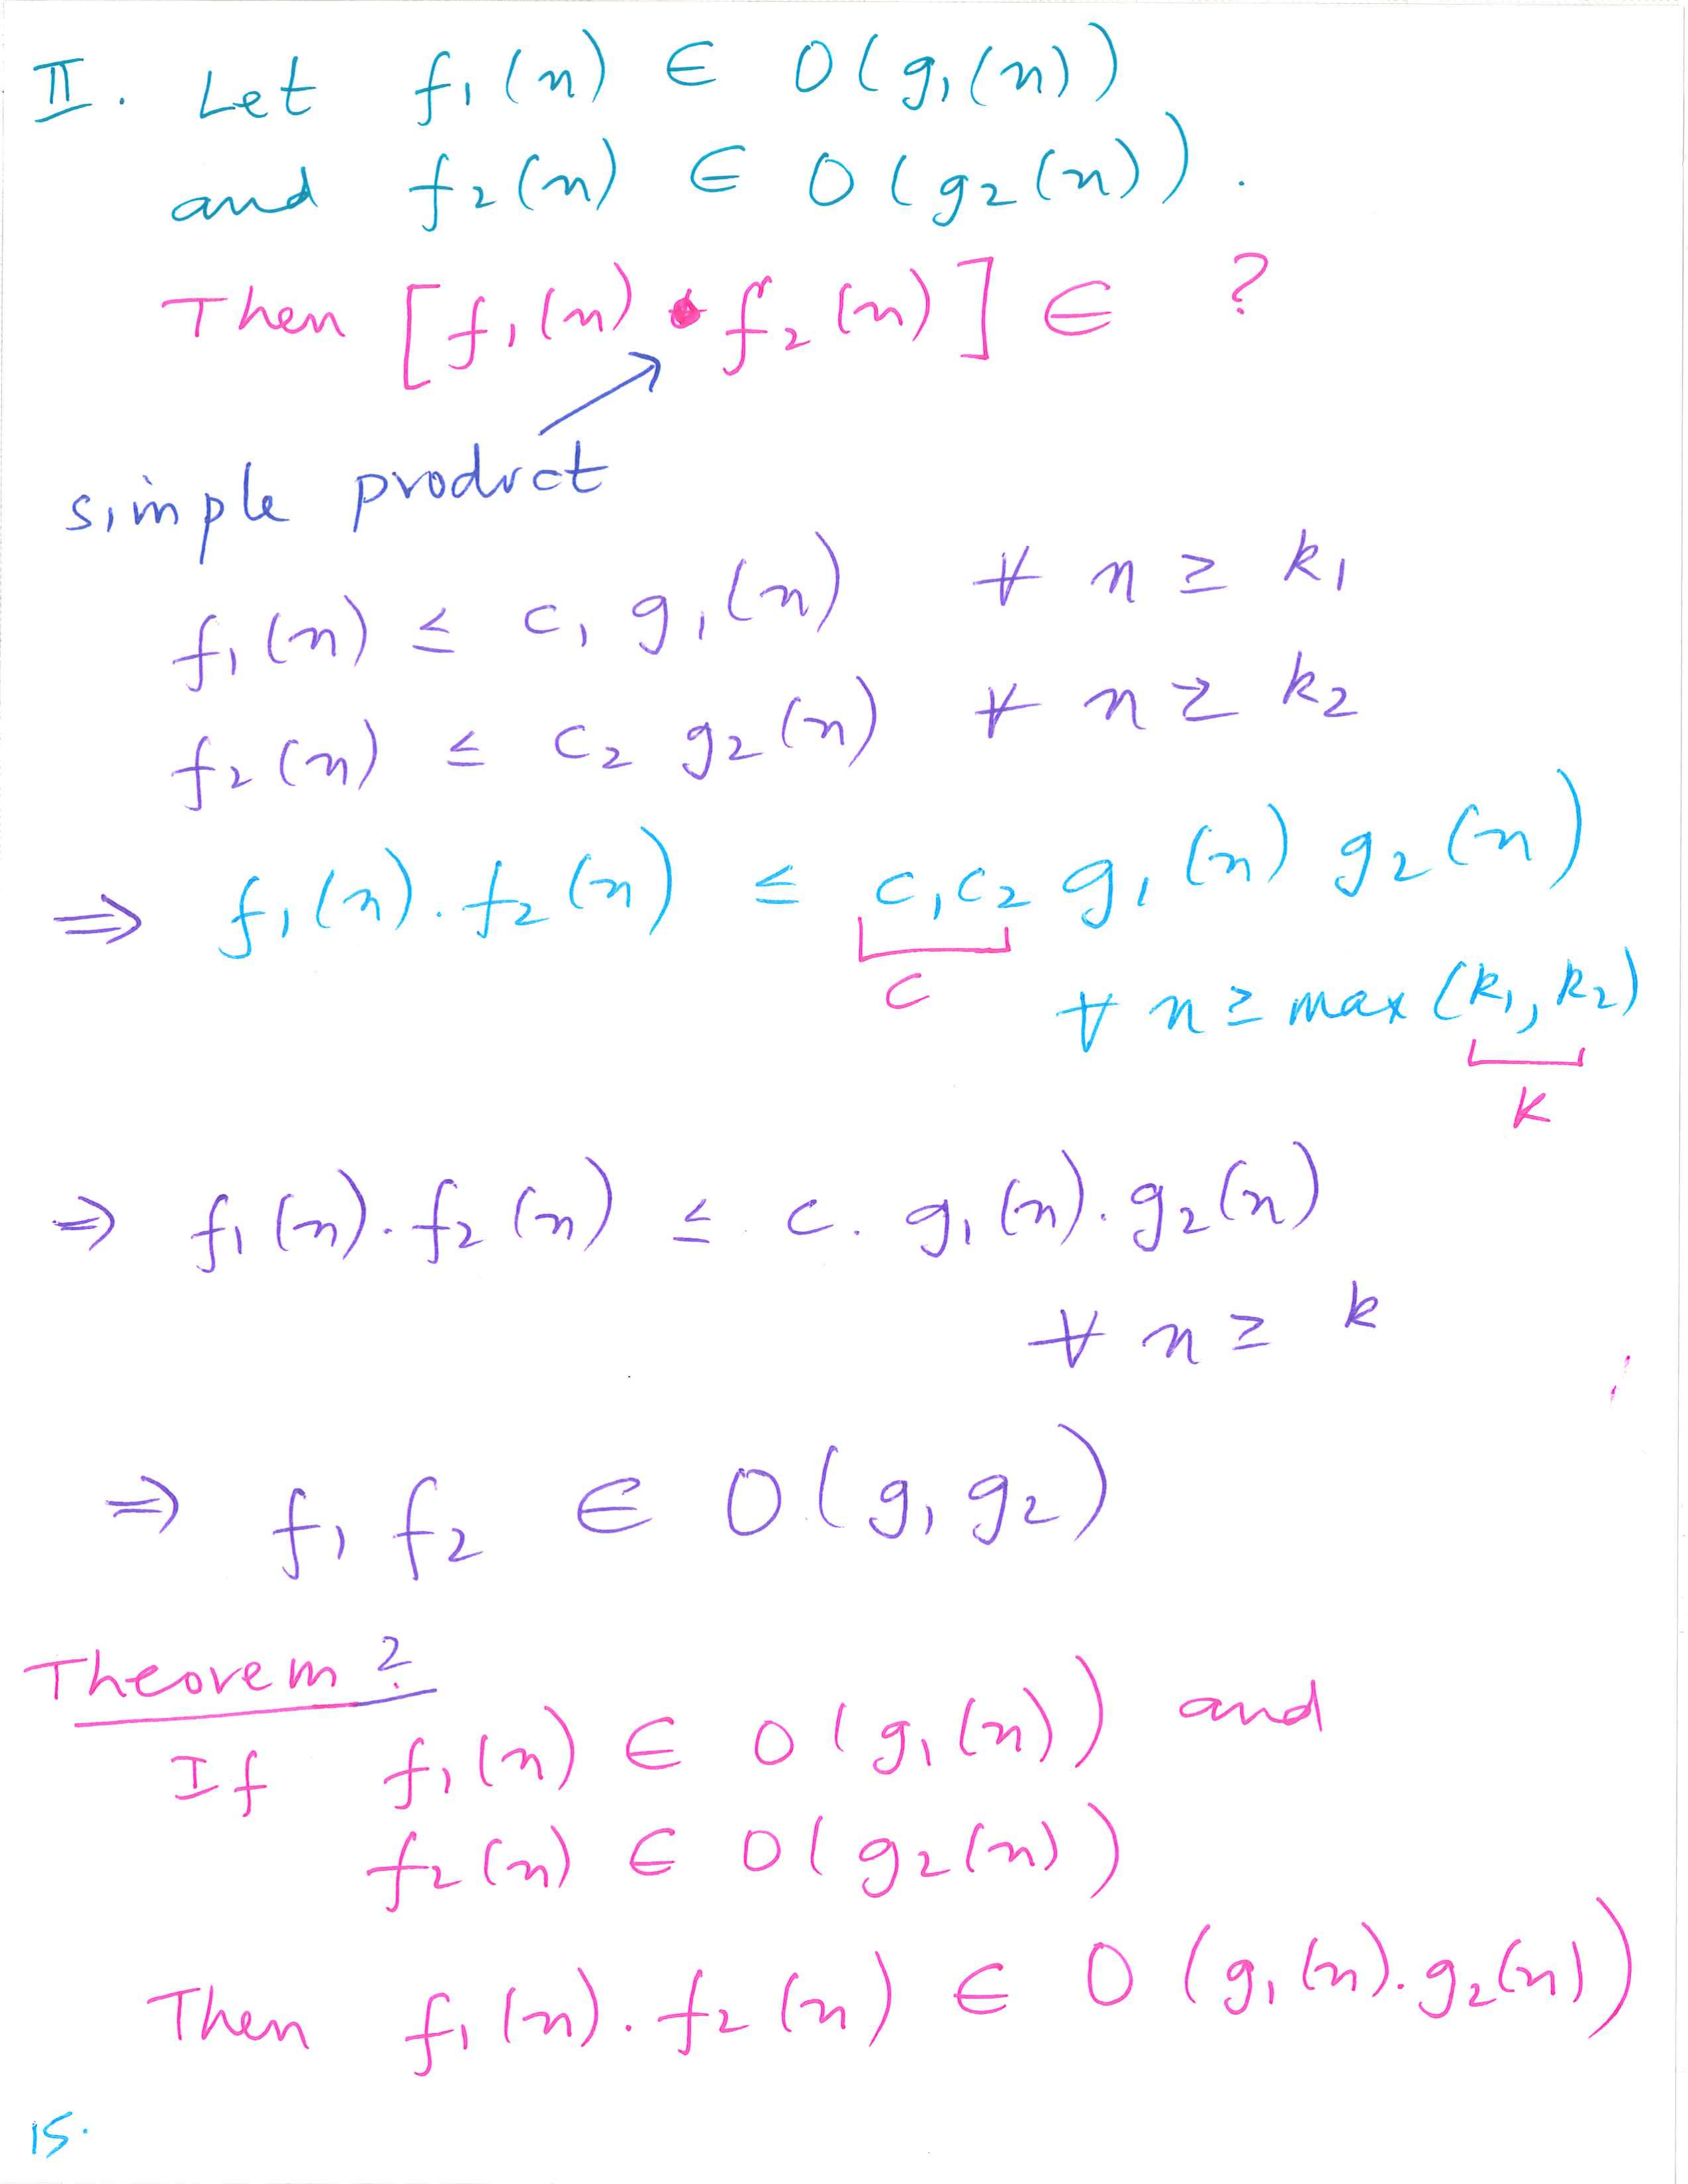 II. Let f₁(n) ∈ O(g₁(n))
and f₂(n) ∈ O(g₂(n)).
Then [f₁(n) • f₂(n)] ∈ ?
simple product
f₁(n) ≤ c₁ g₁(n) ∀ n ≥ k₁
f₂(n) ≤ c₂ g₂(n) ∀ n ≥ k₂
⇒ f₁(n).f₂(n) ≤ c₁c₂ g₁(n) g₂(n)
c
∀ n ≥ max(k₁, k₂)
k
⇒ f₁(n).f₂(n) ≤ c. g₁(n).g₂(n)
∀ n ≥ k
⇒ f₁ f₂ ∈ O(g₁ g₂)
Theorem 2.
If f₁(n) ∈ O(g₁(n)) and
f₂(n) ∈ O(g₂(n))
Then f₁(n).f₂(n) ∈ O(g₁(n).g₂(n))
15.